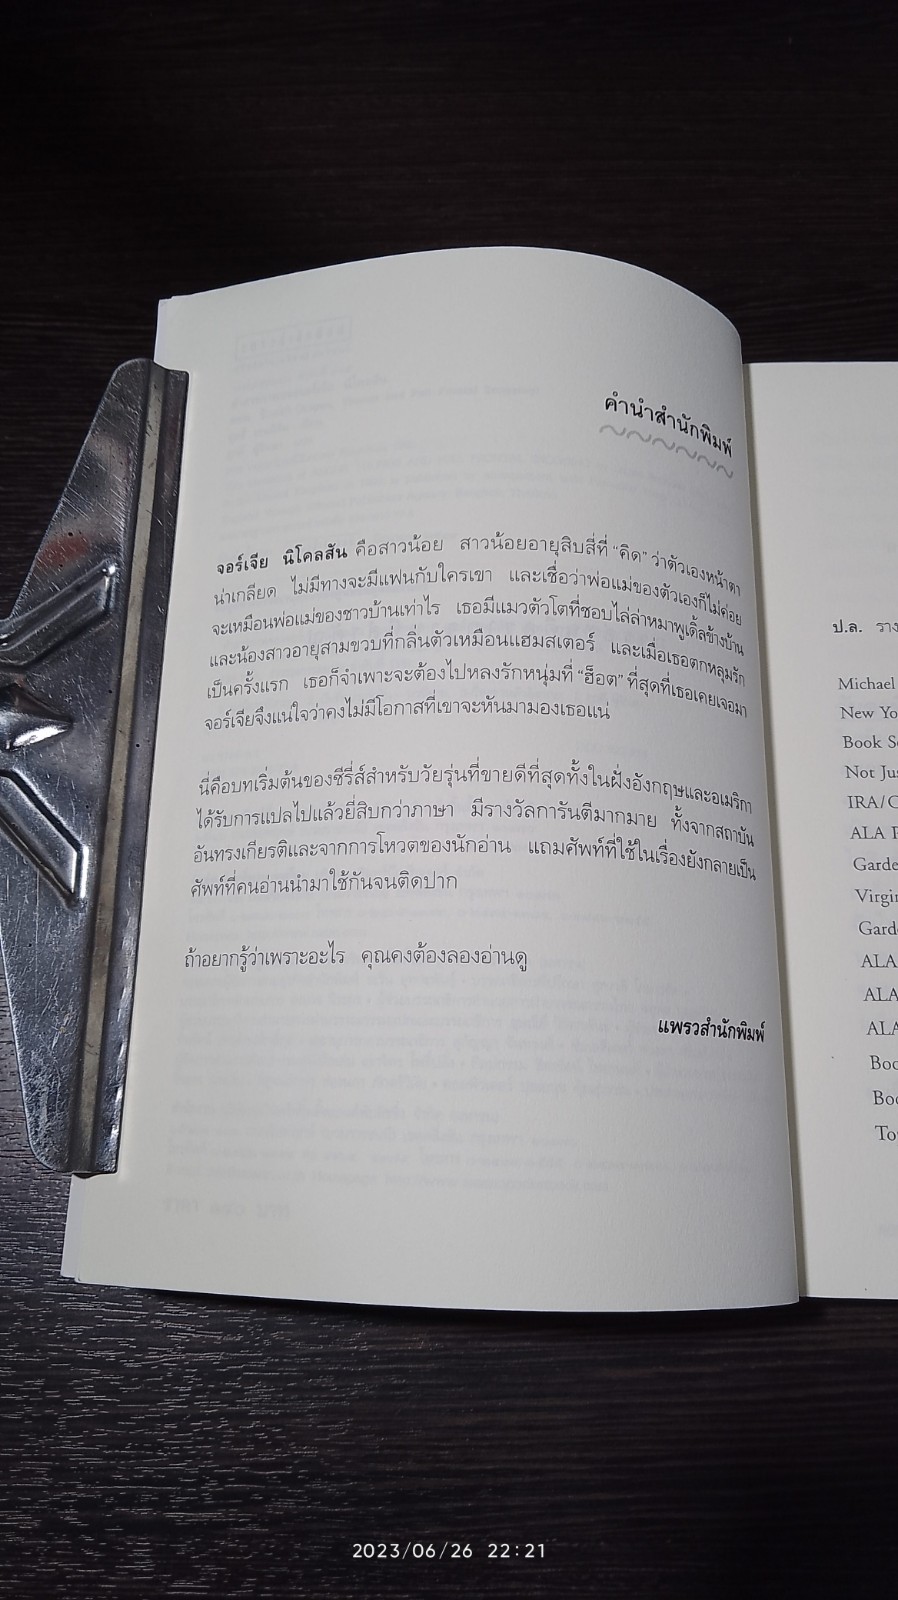 คำนำสำนักพิมพ์
จอร์เจีย นิโคลสัน คือสาวน้อย สาวน้อยอายุสิบสี่ที่ “คิด” ว่าตัวเองหน้าตา
น่าเกลียด ไม่มีทางจะมีแฟนกับใครเขา และเชื่อว่าพ่อแม่ของตัวเองก็ไม่ค่อย
จะเหมือนพ่อแม่ของชาวบ้านเท่าไร เธอมีแมวตัวโตที่ชอบไล่ล่าหมาพูเดิ้ลข้างบ้าน
และน้องสาวอายุสามขวบที่กลิ่นตัวเหมือนแฮมสเตอร์ และเมื่อเธอตกหลุมรัก
เป็นครั้งแรก เธอก็จำเพาะจะต้องไปหลงรักหนุ่มที่ “ฮ็อต” ที่สุดที่เธอเคยเจอมา
จอร์เจียจึงแน่ใจว่าคงไม่มีโอกาสที่เขาจะหันมามองเธอแน่
นี่คือบทเริ่มต้นของซีรี่ส์สำหรับวัยรุ่นที่ขายดีที่สุดทั้งในฝั่งอังกฤษและอเมริกา
ได้รับการแปลไปแล้วยี่สิบกว่าภาษา มีรางวัลการันตีมากมาย ทั้งจากสถาบัน
อันทรงเกียรติและจากการโหวตของนักอ่าน แถมศัพท์ที่ใช้ในเรื่องยังกลายเป็น
ศัพท์ที่คนอ่านนำมาใช้กันจนติดปาก
ถ้าอยากรู้ว่าเพราะอะไร คุณคงต้องลองอ่านดู
แพรวสำนักพิมพ์
ป.ล. ราง
Michael
New Yo
Book S
Not Jus
IRA/C
ALA
Garde
Virgin
Gard
ALA
ALA
ALA
Boo
Boo
To
2023/06/26 22:21